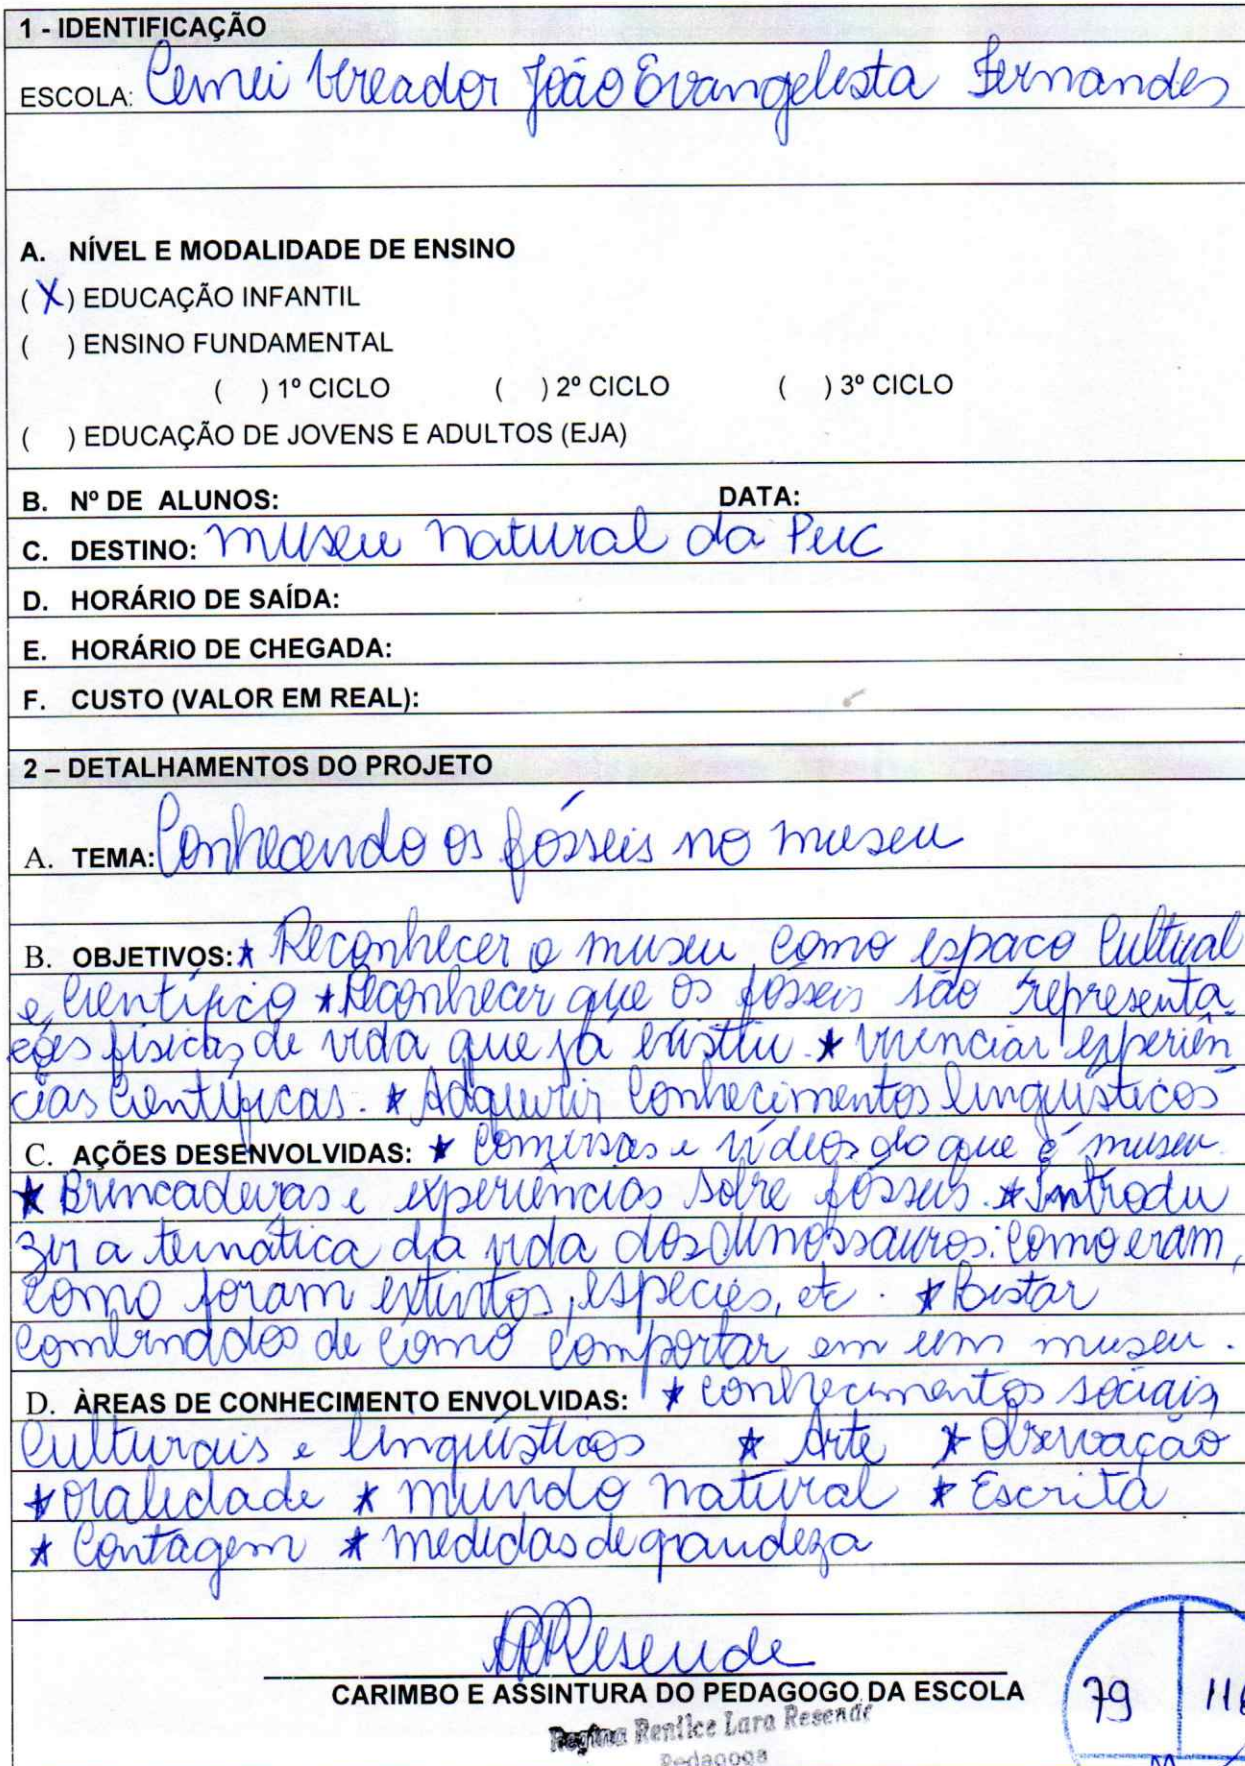 1 - IDENTIFICAÇÃO
ESCOLA: Cemei Vereador João Evangelista Fernandes
A. NÍVEL E MODALIDADE DE ENSINO
( X ) EDUCAÇÃO INFANTIL
( ) ENSINO FUNDAMENTAL
( ) 1º CICLO ( ) 2º CICLO ( ) 3º CICLO
( ) EDUCAÇÃO DE JOVENS E ADULTOS (EJA)
B. Nº DE ALUNOS: DATA:
C. DESTINO: Museu Natural da Puc
D. HORÁRIO DE SAÍDA:
E. HORÁRIO DE CHEGADA:
F. CUSTO (VALOR EM REAL):
2 – DETALHAMENTOS DO PROJETO
A. TEMA: Conhecendo os fósseis no museu
B. OBJETIVOS: * Reconhecer o museu como espaco Cultural
e Científico * Reconhecer que os fósseis são representa
ções físicas de vida que já existiu. * Vivenciar experiên
cias Científicas. * Adquirir Conhecimentos linguísticos
C. AÇÕES DESENVOLVIDAS: * Conversas e vídeos do que é museu.
* Brincadeiras e experiências sobre fósseis. * Introdu
zir a temática da vida dos dinossauros: Como eram,
Como foram extintos, espécies, etc. * Listar
Combinados de como Comportar em um museu.
D. ÀREAS DE CONHECIMENTO ENVOLVIDAS: * Conhecimentos sociais,
Culturais e linguísticos * Arte * Observação
* Oralidade * Mundo Natural * Escrita
* Contagem * Medidas de grandeza
Resende
CARIMBO E ASSINTURA DO PEDAGOGO DA ESCOLA
Regina Renilce Lara Resende
Pedagoga
79 116